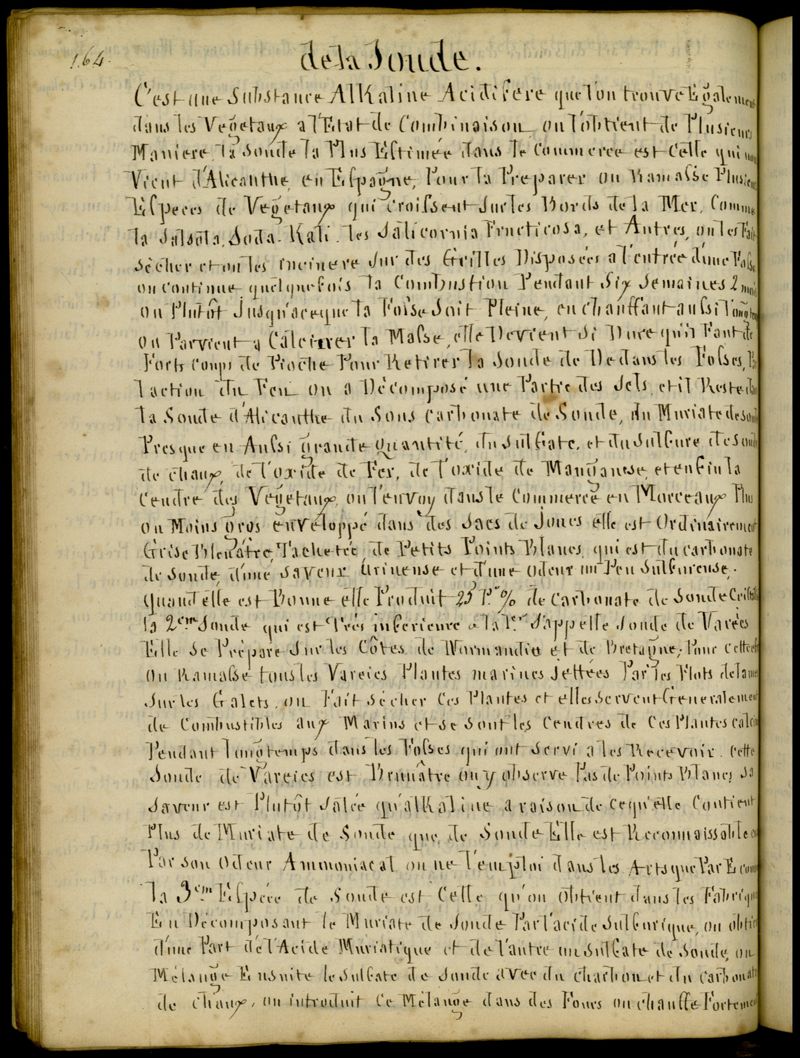 164.
de la Soude.
C'est une Substance Alkaline Acidifere que l'on trouve Egalement
dans les Vegetaux a l'Etat de Combinaison on l'obtient de Plusieurs
Maniere la Soude la Plus Estimée dans le Commerce est Celle qui nous
Vient d'Alicanthe, en Espagne, Pour la Preparer on Ramasse Plusieurs
Especes de Vegetaux qui Croissent Sur les Bords de la Mer, Comme
la Salsola, Soda. Kali. les Salicornia Fructicosa, et Autres, on les Fait
Sécher et on les incinere Sur des Grilles Disposées a l'entrée d'une Fosse
on continue quelquefois la Combustion Pendant Six Semaines 2 mois
ou Plutôt Jusqu'aceque la Fosse Soit Pleine, en chauffant aussi Longtems
on Parvient a Calciner la Masse, elle Devient Si Dure qu'il Faut de
Forts Coups de Pioche Pour Retirer la Soude de Dedans les Fosses, Par
l'action du Feu on a Décomposé une Partie des Sels, et il Reste dans
la Soude d'Alicanthe du Sous Carbonate de Soude, du Muriate de Soude
Presque en Aussi grande quantité, du Sulfate, et du Sulfure de Soude
de chaux, de l'oxide de Fer, de l'oxide de Manganese, et enfin la
Cendre des Vegetaux, on l'envoy dans le Commerce en Morceaux Plus
ou Moins gros enveloppé dans des Sacs de Joncs elle est Ordinairement
Grise Bleuâtre Tachetée, de Petits Points Blancs, qui est du carbonate
de Soude, d'une Saveur Urineuse et d'une odeur un Peu Sulfureuse.
Quand elle est Bonne elle Produit 25 Pr % de Carbonate de Soude Cristallisé
la 2eme Soude qui est Très inferieure a la 1re S'appelle Soude de Varées
Elle Se Prépare Sur les Côtes de Normandie et de Bretagne, Pour cette effet
on Ramasse tous les Vareies Plantes marines jettées Par les Flots de la mer
Sur les Galets, on Fait Sécher Ces Plantes et elles Servent Generalement
de Combustibles aux Marins et se Sont les Cendres de Ces Plantes calciné
Pendant longtemps dans les Fosses qui ont Servi a les Recevoir. Cette
Soude de Vareies est Brunâtre on y observe Pas de Points Blancs Sa
Saveur est Plutôt Salée qu'alkaline a raison de cequ'elle Contient
Plus de Muriate de Soude que de Soude Elle est Reconnaissable
Par son odeur Ammoniacal on ne l'emploi dans les Arts que Par Econo
la 3eme Espéce de Soude est Celle qu'on obtient dans les Fabriques
En Decomposant le Muriate de Soude Par l'acide Sulfurique, on obtient
d'une Part de l'Acide Muriatique et de l'autre un Sulfate de Soude, on
Mélange Ensuite le Sulfate de Soude avec du charbon et du Carbonate
de chaux, on introduit Ce Mélange dans des Fours on chauffe Fortement